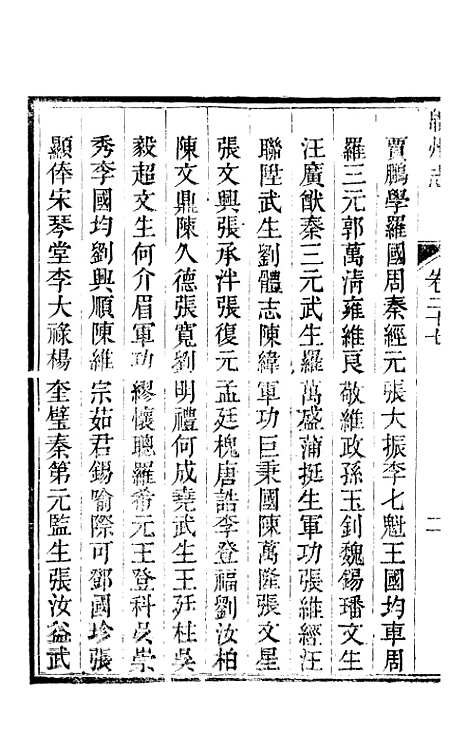 州志
卷三十七
二
賈鵬學羅國周秦經元張大振李七魁王國均車周
羅三元郭萬淸雍維良敬維政孫玉釗魏錫璠文生
汪廣猷秦三元武生羅萬盛蒲挺生軍功張維經汪
聯陞武生劉體志陳緯軍功巨秉國陳萬隆張文星
張文興張承泮張復元孟廷槐唐誥李登福劉汝柏
陳文鼎陳久德張寬劉明禮何成堯武生王廷桂吳
毅超文生何介眉軍功繆懷聰羅希元王登科吳崇
秀李國均劉興順陳維宗茹君錫喻際可鄧國珍張
顯俸宋琴堂李大祿楊奎璧秦第元監生張汝益武